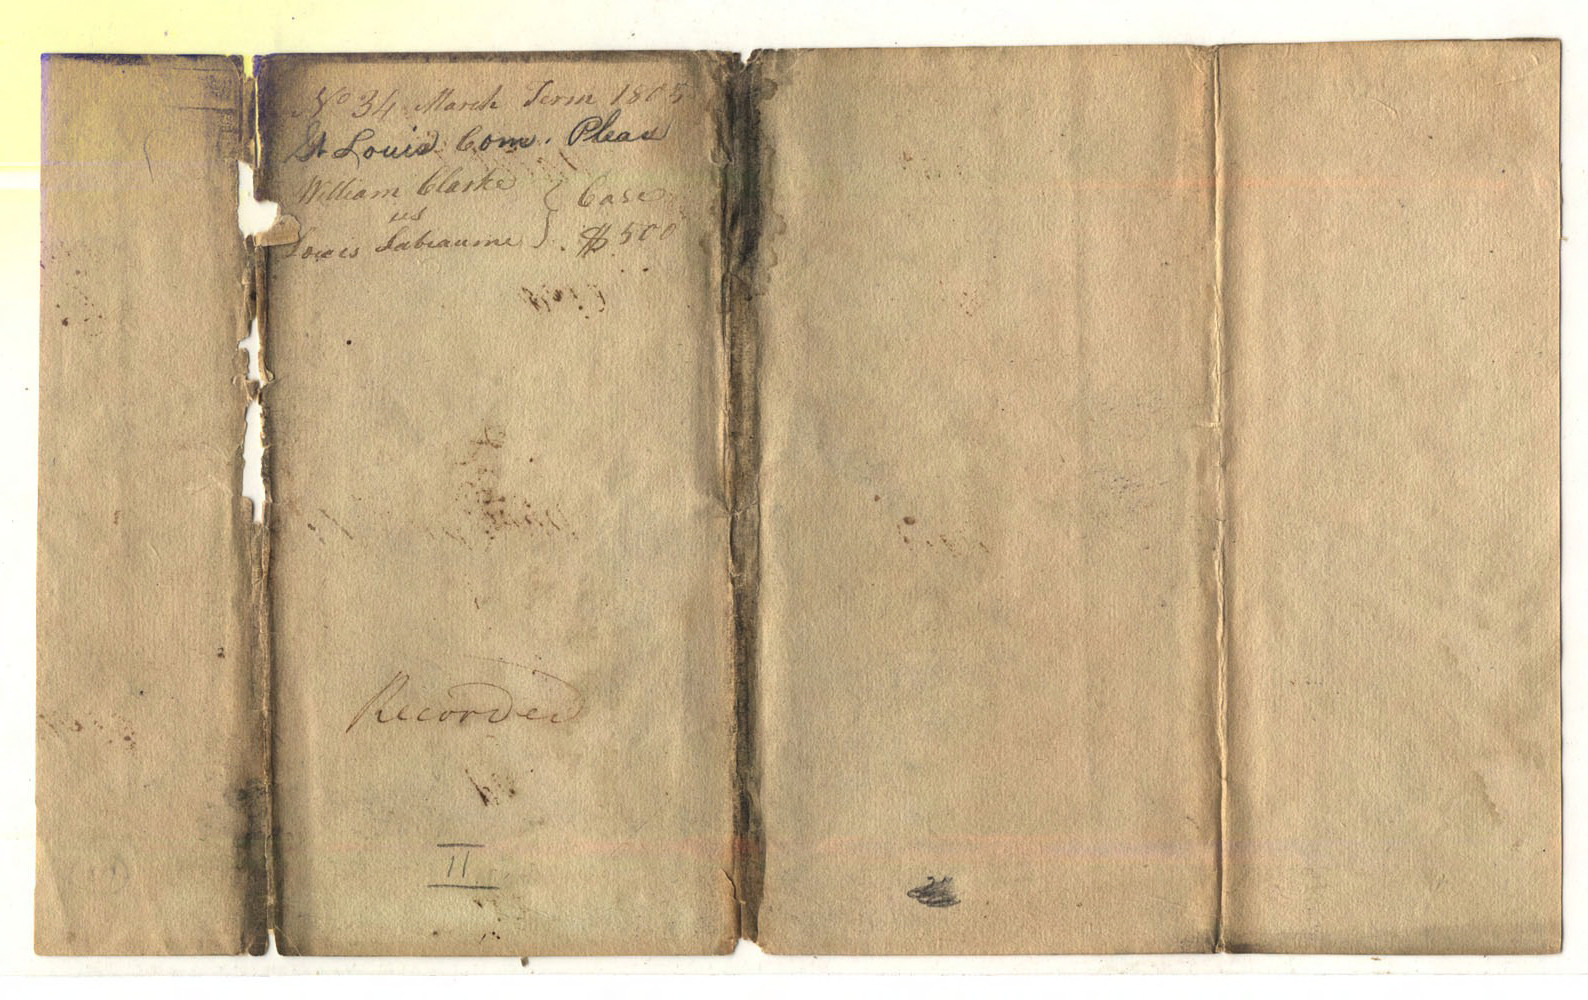 No 34 March Term 1805
St Louis Com. Pleas
William Clarke } Case
vs
Louis Labeaume } . $500
Recorded
II